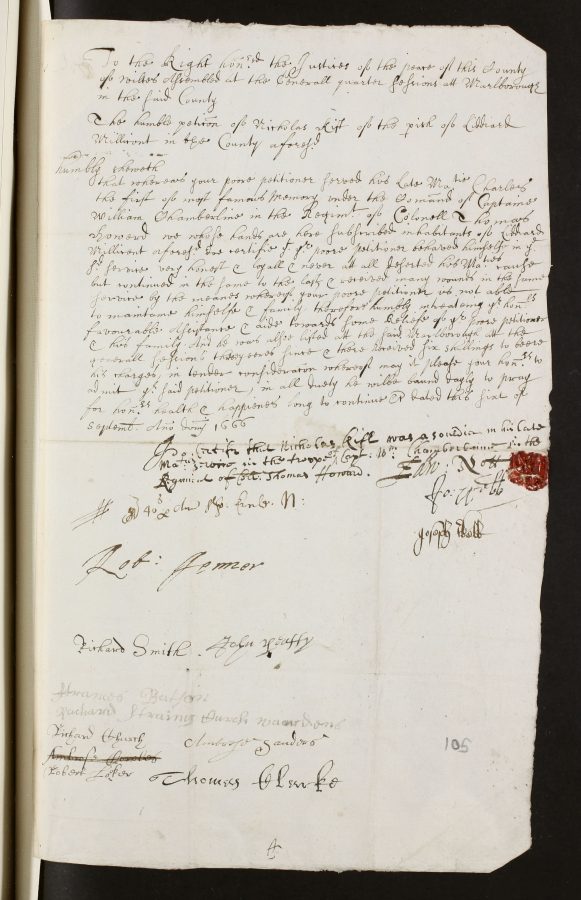 To the Right hon:ble the Justices of the peace of this County
of Wiltes Assembled at the Generall quarter Sessions att Marlborough
in the said County
The humble petion of Nicholas Rift of the pish of Liddiard
Millicent in the County aforesd
humbly sheweth
that whereas your poore petitioner served his Late Ma:tie Charles
the first of most famous Memory under the Comand of Captaine
William Chamberline in the Regimt of Colonell Thomas
Howard we whose hands are here subscribed inhabitants of Liddiard
Millicent aforesd doe certifie yt yr poore petitioner behaved himselfe in ye
sd service very honest & loyall & never att all deserted his Ma:ties cause
but continued in the same to the last & received many wounds in the same
service by the meanes whereof your poore petitioner is not able
to maintaine himselfe & family therefore humbly intreating yr hon:rs
favourable Assistance & aide towards some Releife of yr poore petitioner
& his family And he was alsoe listed att the said Marlborough att the
generall sessions three yeres since & there received six shillings to beare
his charges, in tender consideration whereof may it please your hon:rs to
admit yr said petitioner, in all duety he wilbe bound dayly to pray
for hon:rs health & happienes long to continue dated this first of
Septemb: Ano Domi 1666
I do Certifie that Nicholas Rift was a souldier in his Late
Ma:ties servis in the troope of Capt: Wm Chamberlaine in the
Regiment of Col. Thomas Howard.
Edw: Nott
Jo: Webb
Joseph
40s
Rob: Jenner
Richard Smith John
Richard Church wardens
Richard Church Ambrose Sanders
Ambrose
Robert
Thomas Clerke
105
4